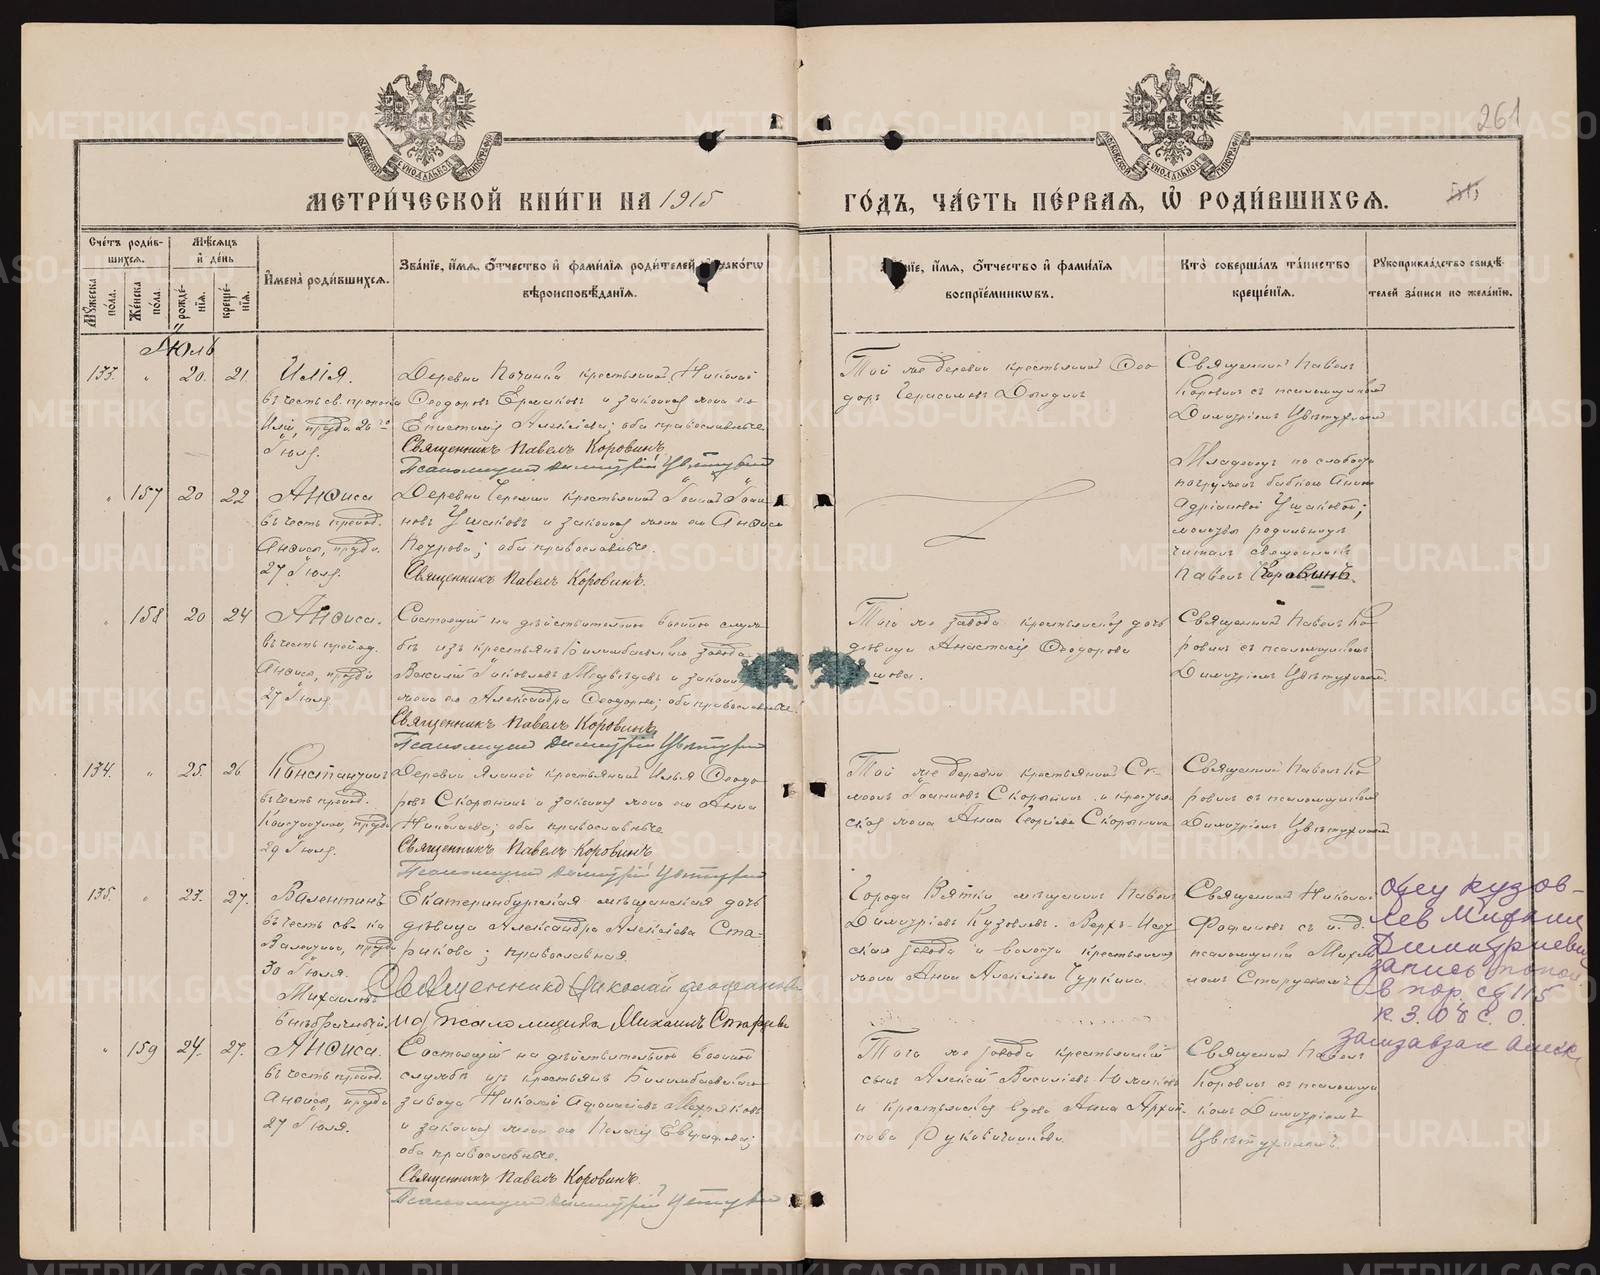 261
515
МЕТРИ́ЧЕСКОЙ КНИ́ГИ НА 1915
ГО́ДЪ, ЧА́СТЬ ПЕ́РВАЯ, Ѡ РОДИ́ВШИХСЯ.
Сче́тъ роди́в-
шихся.
Му́жеска по́ла.
Же́нска по́ла.
Мѣ́сяцъ
и҆ де́нь
рожде́-
нія.
креще́-
нія.
И҆мена̀ роди́вшихся.
Зва́ніе, и҆́мя, ѻ҆́тчество и҆ фами́лія роди́телей
вѣроисповѣ́данія.
и҆́мя, ѻ҆́тчество и҆ фами́лія
воспріе́мникѡвъ.
Кто̀ соверша́лъ та́инство
креще́нія.
Рꙋкоприкла́дство свидѣ́-
телей за́писи по жела́нію.
Іюль
133. " 20. 21.
Илія.
въ честь св. пророка
Иліи, празд. 20 го
Іюля.
Деревни Починка крестьянинъ Николай
Ѳеодоровъ Ермаковъ и законная жена его
Епистимія Алексѣева; оба православные.
Священникъ Павелъ Коровинъ.
Псаломщикъ Димитрій Цвѣтухинъ
Той же деревни крестьянинъ Ѳео-
доръ Герасимовъ
Священникъ Павелъ
Коровинъ съ псаломщикомъ
Димитріемъ Цвѣтухинымъ
" 157 20 22
Анѳиса
въ честь препод.
Анѳисы, праздн.
27 Іюля.
Деревни Черемши крестьянинъ Іоаннъ Іоан-
новъ Ушаковъ и законная жена его Анѳиса
Петрова; оба православные.
Священникъ Павелъ Коровинъ.
Младенецъ по слабости
погруженъ бабкою Анною
Адріановой Ушаковой;
молитвы родильницѣ
читалъ священникъ
Павелъ Коровинъ.
" 158 20 24
Анѳиса.
въ честь препод.
Анѳисы, праздн
27 Іюля.
Состоящій на дѣйствительной военной служ-
бѣ изъ крестьянъ Билимбаевскаго завода
Василій Іаковлевъ Медвѣдевъ и законная
жена его Александра Ѳеодорова; оба православные.
Священникъ Павелъ Коровинъ
Псаломщикъ Димитрій Цвѣтухинъ
Того же завода крестьянская дочь
дѣвица Анастасія Ѳеодорова
Священникъ Павелъ Ко-
ровинъ съ псаломщикомъ
Димитріемъ Цвѣтухинымъ.
134. " 25. 26
Константинъ
въ честь препод.
Константина, праздн
29 Іюля.
Деревни Илья Ѳеодо-
ровъ Скорынинъ и законная жена его Анна
Николаева; оба православные
Священникъ Павелъ Коровинъ
Псаломщикъ Димитрій Цвѣтухинъ
Той же деревни крестьянинъ Се-
менъ Іоанновъ Скорынинъ и крестьян-
ская жена Анна Георгіева Скорынина
Священникъ Павелъ Ко-
ровинъ съ псаломщикомъ
Димитріемъ Цвѣтухинымъ
135. " 23. 27.
Валентинъ
въ честь св.
Валентина, праздн
30 Іюля.
Михаиловъ
внѣбрачный.
Екатеринбургская мѣщанская дочь
дѣвица Александра Алексѣева Ста-
рикова; православная.
Священникъ Николай Феофановъ
Псаломщика Михаилъ Старцевъ
Города Вятки мѣщанинъ Павелъ
Димитріевъ Кузовлевъ. Верхъ-Исет-
скаго завода и волости крестьянская
жена Анна Алексѣева Чуркина
Священникъ Николай
съ и. д.
псаломщика Михаи-
ломъ Старцевымъ
Отец Кузов-
лев Михаил
Дмитриевич
запись
в пор. ст 115
к. З. О б С. О.
" 159 24. 27.
Анѳиса.
въ честь препод.
Анѳисы, праздн
27 Іюля.
Состоящій на дѣйствительной военной
службѣ изъ крестьянъ Билимбаевскаго
завода Николай Аѳанасіевъ
и законная жена его Пелагія Евграфова;
оба православные.
Священникъ Павелъ Коровинъ.
Псаломщикъ Димитрій Цвѣтухинъ
Того же завода крестьянскій
сынъ Алексій Василіевъ
и крестьянская вдова Анна Архип-
пова Рукавишникова.
Священникъ Павелъ
Коровинъ съ псаломщи-
комъ Димитріемъ
Цвѣтухинымъ.
METRIKI.GASO-URAL.RU